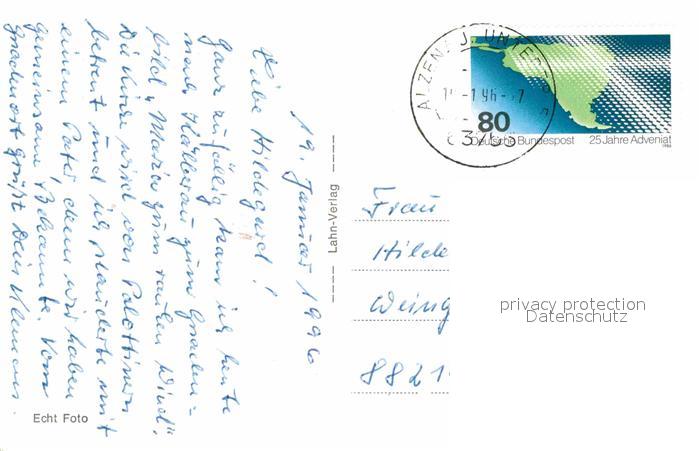 19. Januar 1996
Liebe Hildegard!
Ganz zufällig kam ich heute
nach Kälberau zum Gnaden-
bild „Maria zum rauhen Wind“.
Die Kirche wird von Pallottinern
betreut und ich plauderte mit
einem Pater, denn wir haben
gemeinsame Bekannte. Vom
Gnadenort grüßt Dein Klemens.
Echt Foto
Lahn-Verlag
ALZENAU I. UNTERFR
80
Deutsche Bundespost 25 Jahre Adveniat
1986
Frau
Hilde
Weing
8821
privacy protection
Datenschutz